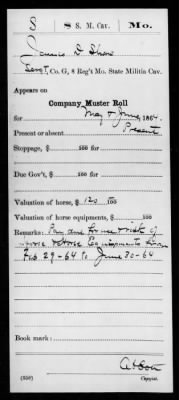 S 8 S. M. Cav. Mo.
James D. Shaw
Sergt, Co. G, 8 Reg't Mo. State Militia Cav.
Appears on
Company Muster Roll
for May & June, 1864.
Present or absent Present
Stoppage, $ 100 for
Due Gov't, $ 100 for
Valuation of horse, $ 120 100
Valuation of horse equipments, $ 100
Remarks: Pay due for use & risk of
horse & Horse Equipments from
Feb. 29-64 to June 30-64
Book mark:
(358) Copyist.